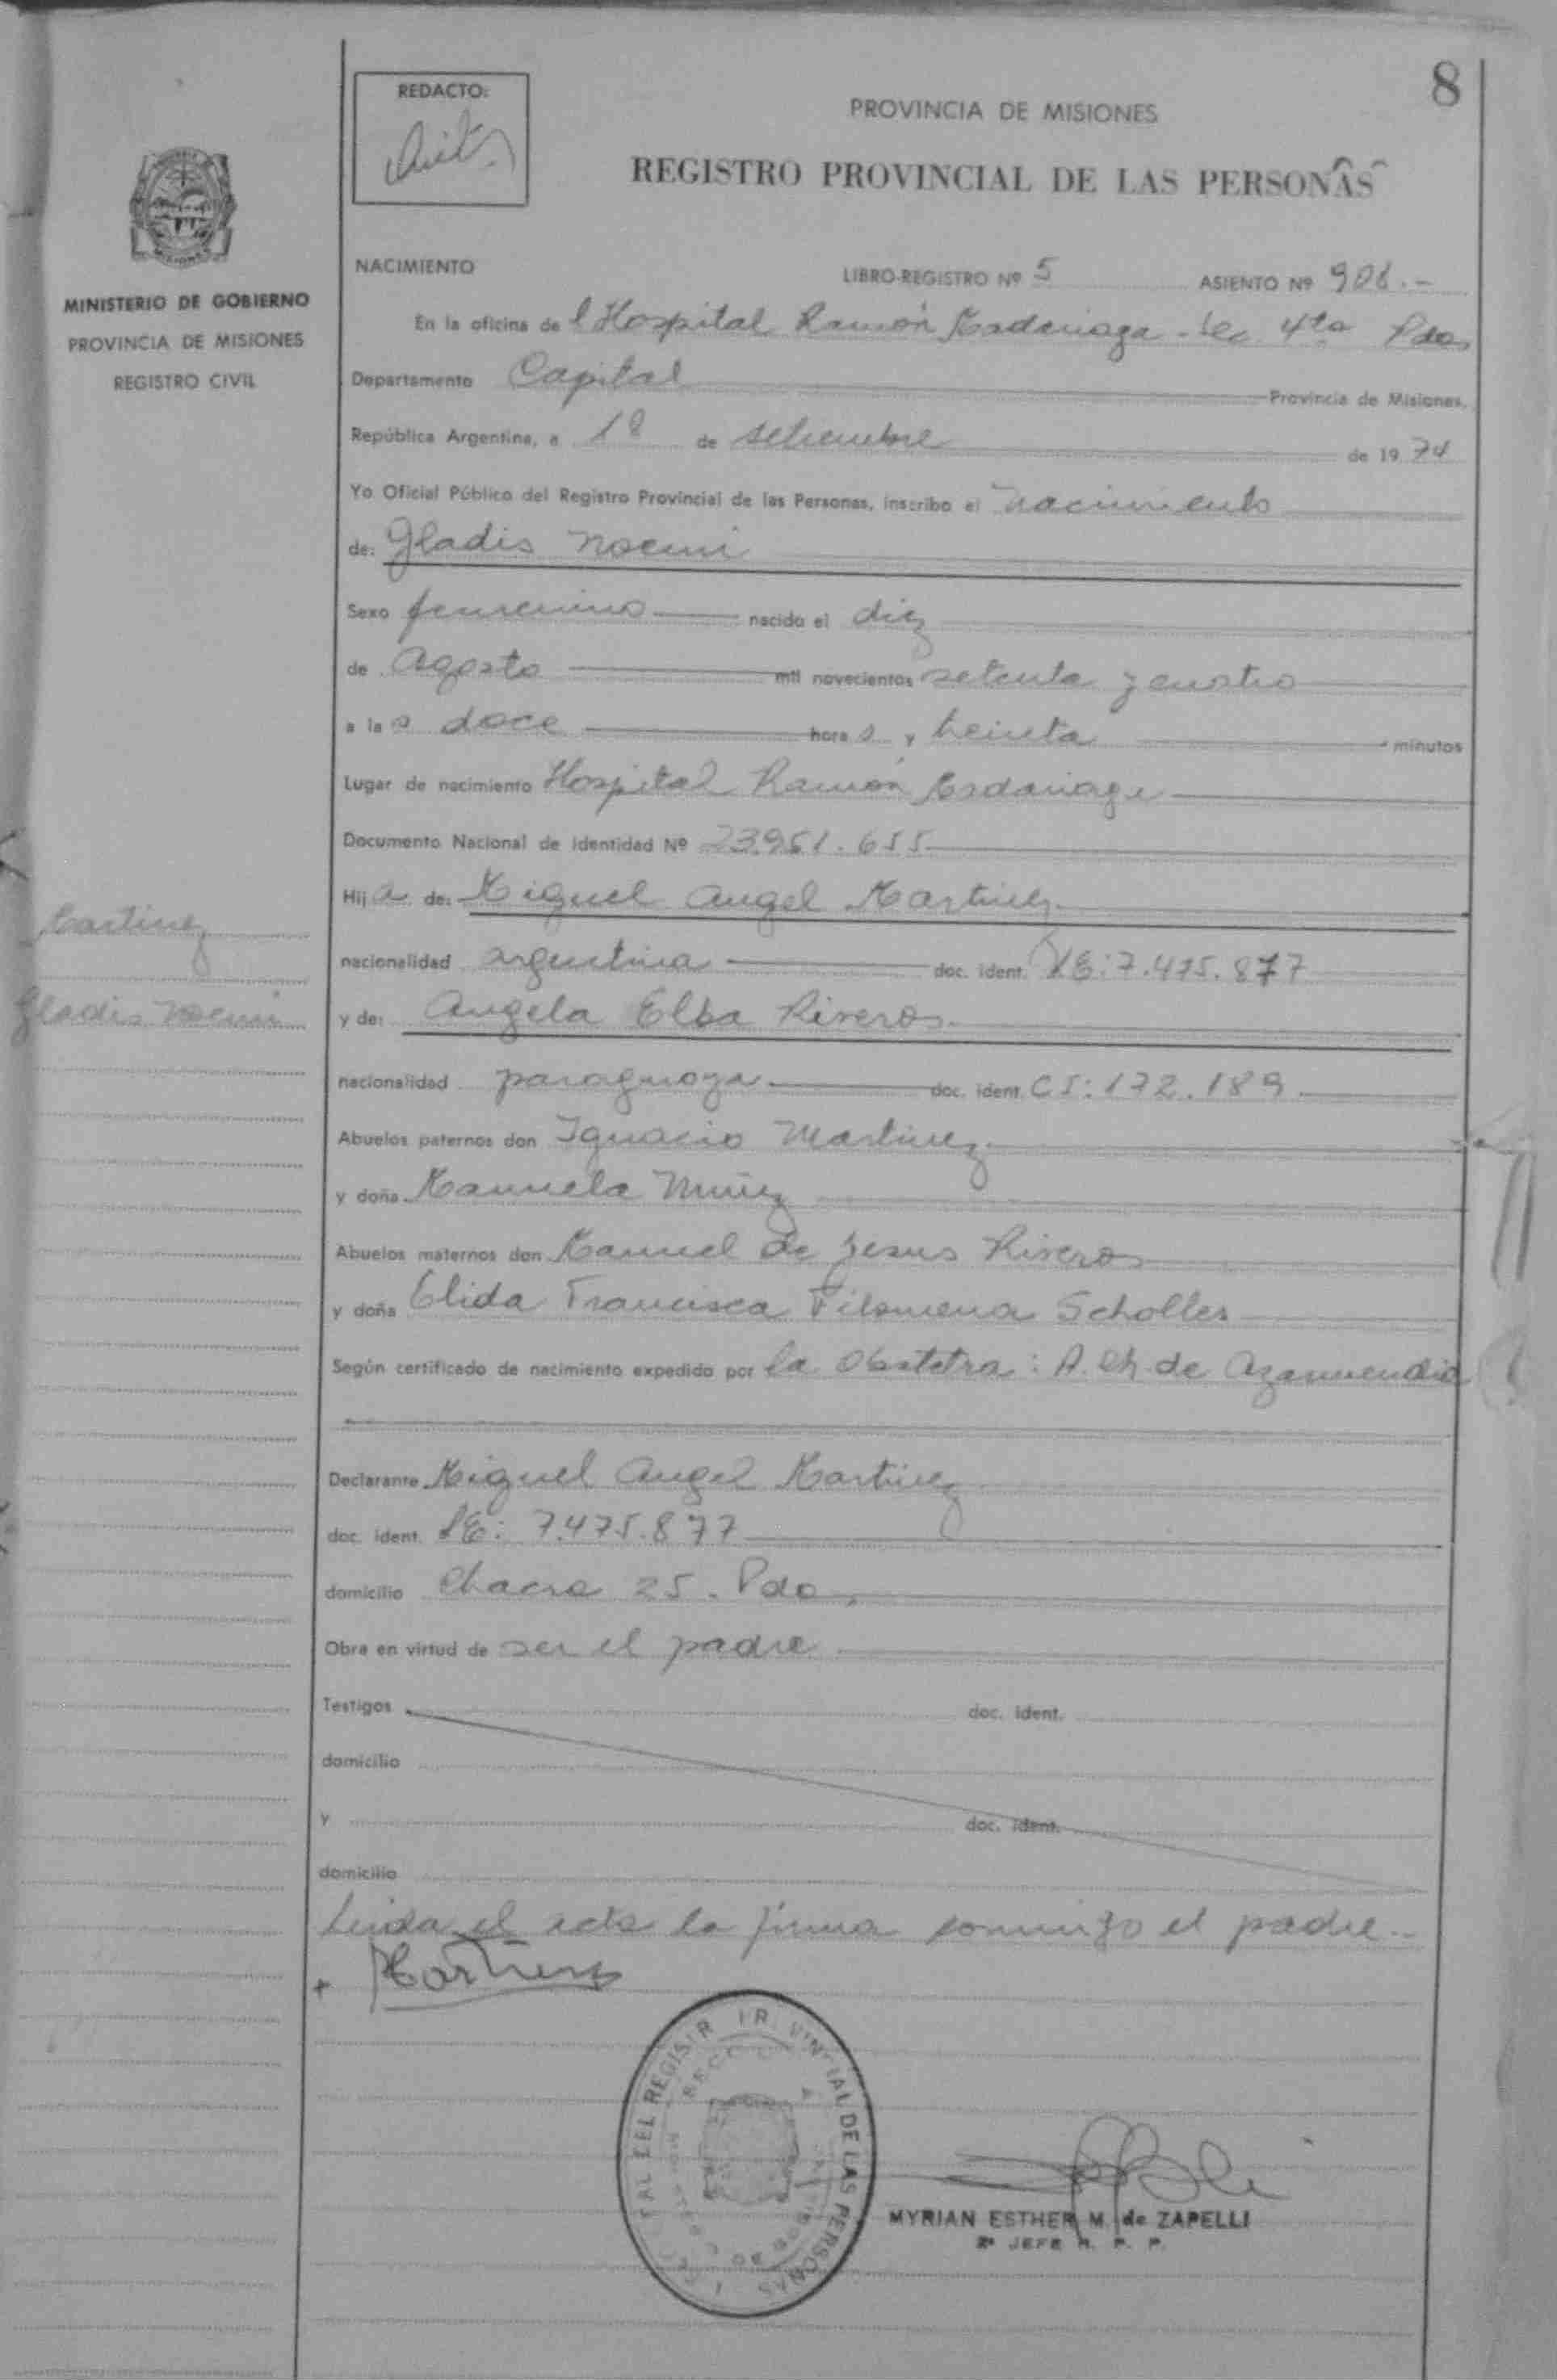 8
REDACTO:
PROVINCIA DE MISIONES
REGISTRO PROVINCIAL DE LAS PERSONAS
MINISTERIO DE GOBIERNO
PROVINCIA DE MISIONES
REGISTRO CIVIL
NACIMIENTO LIBRO-REGISTRO Nº 5 ASIENTO Nº 906.-
En la oficina de l Hospital Ramón Madariaga - Sec. 4ta Pdas
Departamento Capital Provincia de Misiones,
República Argentina, a 18 de setiembre de 1974
Yo Oficial Público del Registro Provincial de las Personas, inscribo el nacimiento
de: Gladis Noemi
Sexo femenino nacido el diez
de Agosto mil novecientos setenta y cuatro
a la s doce hora s y treinta minutos
Lugar de nacimiento Hospital Ramón Madariaga
Documento Nacional de Identidad Nº 23.951.655
Hij a de: Miguel Angel Martinez
Martinez
nacionalidad argentina doc. ident. LE: 7.475.877
Gladis Noemi
y de: Angela Elba Riveros
nacionalidad paraguaya doc. ident. CI: 172.189
Abuelos paternos don Ignacio Martinez
y doña Manuela Muñiz
Abuelos maternos don Manuel de Jesus Riveros
y doña Elida Francisca Filomena Scholler
Según certificado de nacimiento expedido por la Obstetra: A. Ch de Azarmendia
Declarante Miguel Angel Martinez
doc. ident. LE: 7.475.877
domicilio Chacra 25. Pdas
Obra en virtud de ser el padre
Testigos doc. ident.
domicilio
y doc. ident.
domicilio
Leida el acta la firma conmigo el padre.-
+ Martinez
DEL REGISTR PR VINCIAL DE LAS PERSONAS
MYRIAN ESTHER M. de ZAPELLI
2º JEFE R. P. P.